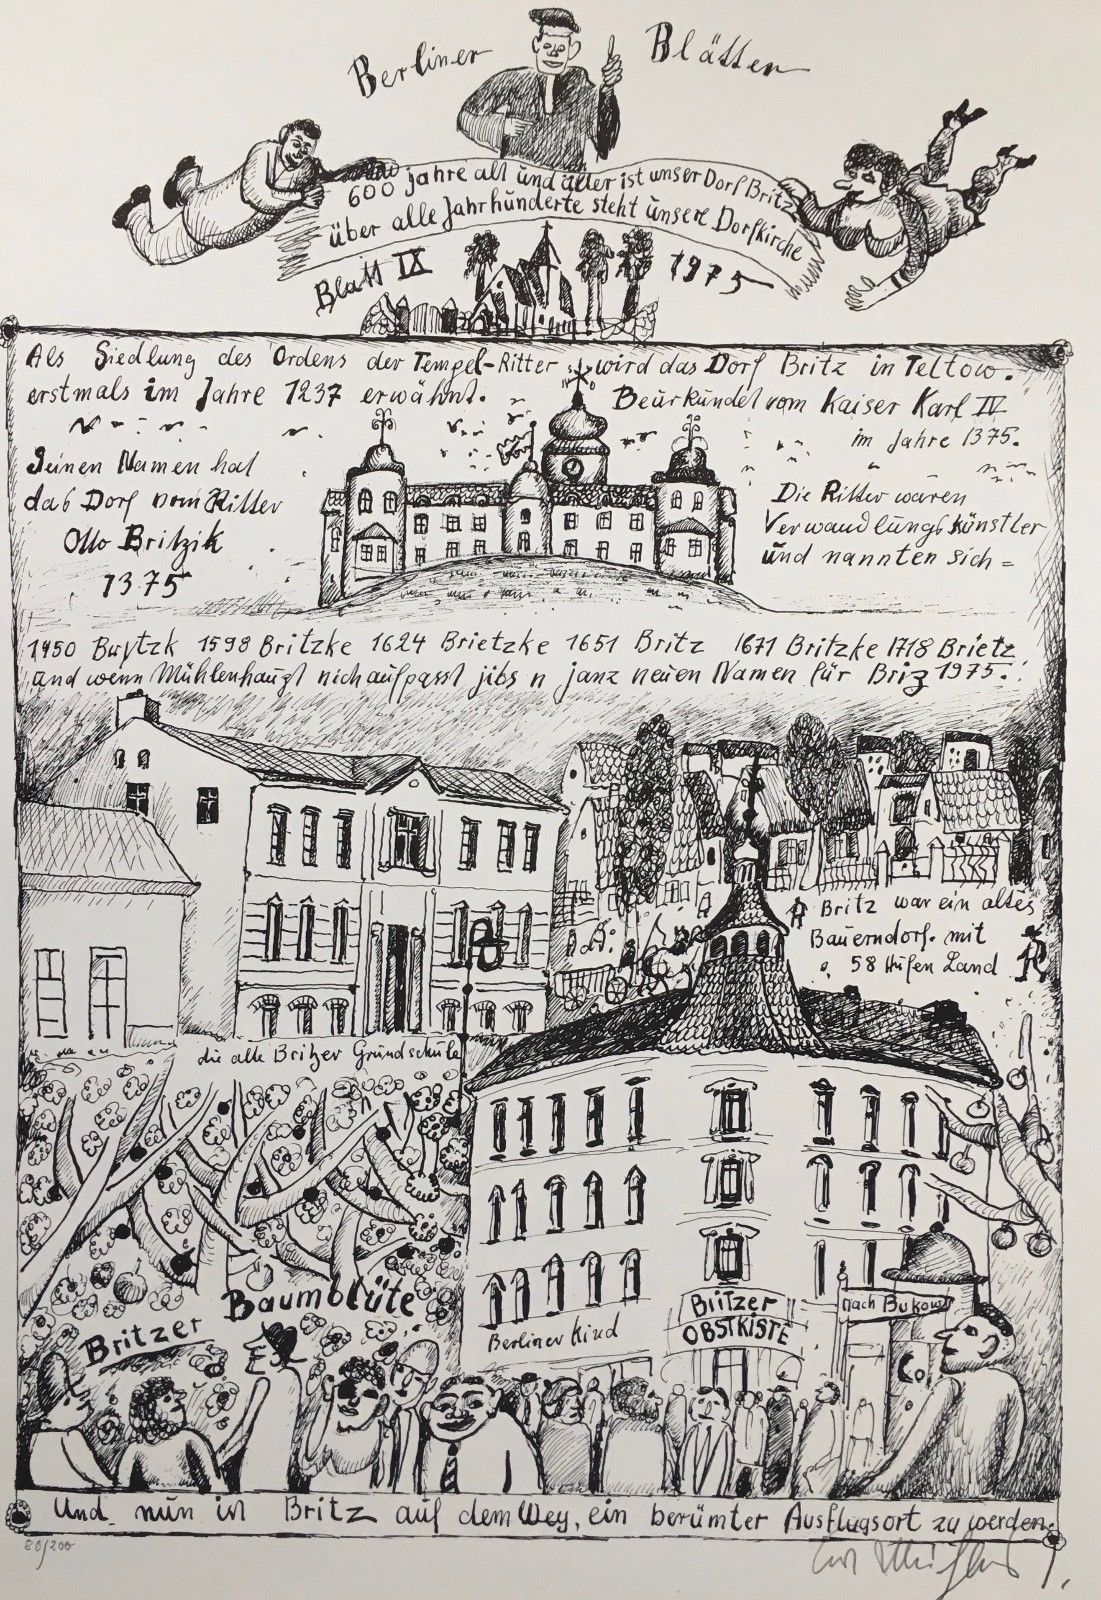 Berliner Blätter
600 Jahre alt und älter ist unser Dorf Britz
über alle Jahrhunderte steht unsere Dorfkirche
Blatt IX 1975
Als Siedlung des Ordens der Tempel-Ritter wird das Dorf Britz in Teltow.
erstmals im Jahre 1237 erwähnt. Beurkundet vom Kaiser Karl IV
im Jahre 1375.
Seinen Namen hat
das Dorf vom Ritter
Otto Britzik
1375
Die Ritter waren
Verwandlungskünstler
und nannten sich =
1450 1598 Britzke 1624 Brietzke 1651 Britz 1671 Britzke 1718 Brietz
und wenn Mühlenhaupt nich aufpasst jibs n janz neuen Namen für Briz 1975.
Britz war ein altes
Bauerndorf. mit
58 Hufen Land
die alte Britzer Grundschule
Britzer
Baumblüte
Berliner Kind
Britzer
OBSTKISTE
nach Bukow
Und nun ist Britz auf dem Wey, ein berümter Ausflugsort zu werden.
80/200